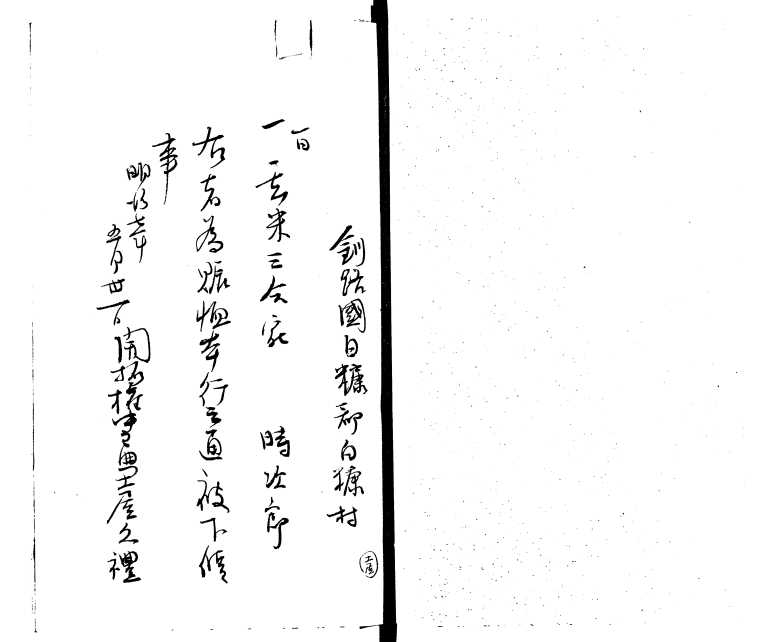 釧路國白糠郡白糠村
一日
一玄米三合宛 時次郎
右者為賑恤本行之通被下候
事
明治七年
五月廿一日 開拓權典土屋久禮
土屋